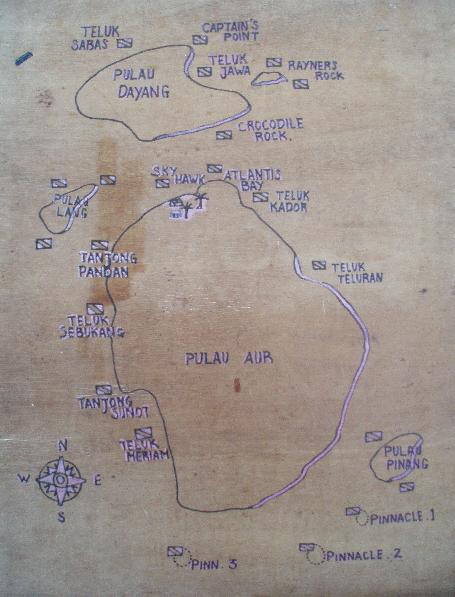 TELUK
SABAS
CAPTAIN'S
POINT
PULAU
DAYANG
TELUK
JAWA
RAYNERS
ROCK
CROCODILE
ROCK.
SKY
HAWK
ATLANTIS
BAY
TELUK
KADOR
PULAU
LANG
TANJONG
PANDAN
TELUK
TELURAN
TELUK
SEBUKANG
PULAU AUR
TANJONG
SUNOT
TELUK
MERIAM
PULAU
PINANG
N
W
E
S
PINNACLE.1
PINNACLE.2
PINN.3